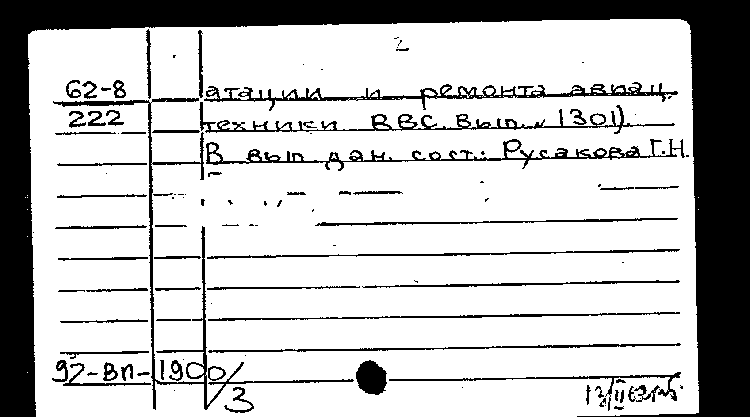 2
62-8 атации и ремонта авиац.
222 техники ВВС. Вып. 1301).
В вып. дан. сост.: Русакова Г.Н.
97-вп-1900/3